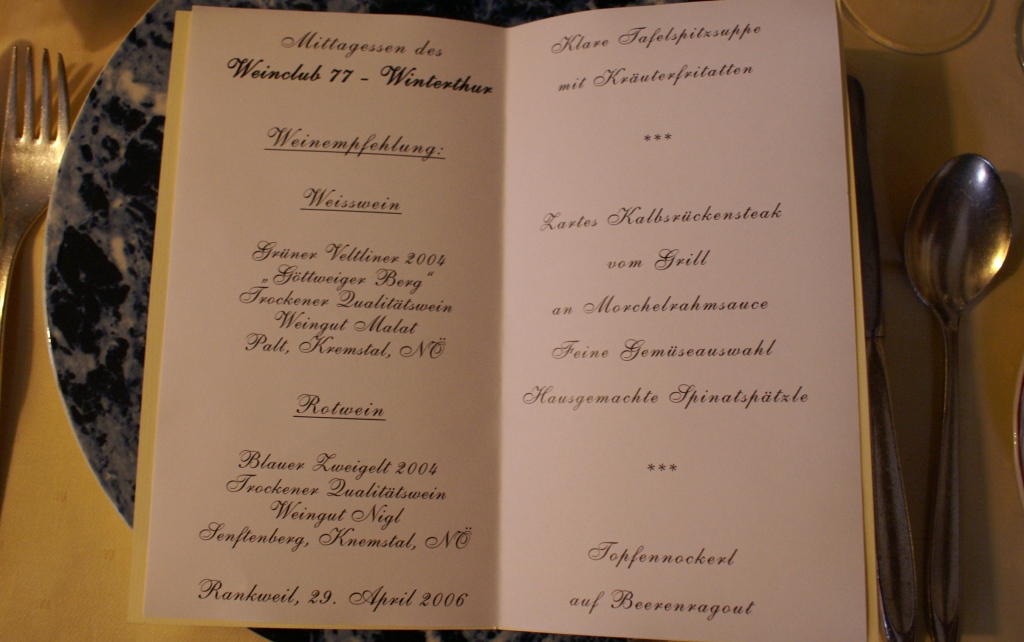 Mittagessen des
Weinclub 77 - Winterthur
Weinempfehlung:
Weisswein
Grüner Veltliner 2004
„Göttweiger Berg“
Trockener Qualitätswein
Weingut Malat
Palt, Kremstal, NÖ
Rotwein
Blauer Zweigelt 2004
Trockener Qualitätswein
Weingut Nigl
Senftenberg, Knemstal, NÖ
Rankweil, 29. April 2006
Klare Tafelspitzsuppe
mit Kräuterfritatten
***
Zartes Kalbsrückensteak
vom Grill
an Morchelrahmsauce
Feine Gemüseauswahl
Hausgemachte Spinatspätzle
***
Topfennockerl
auf Beerenragout